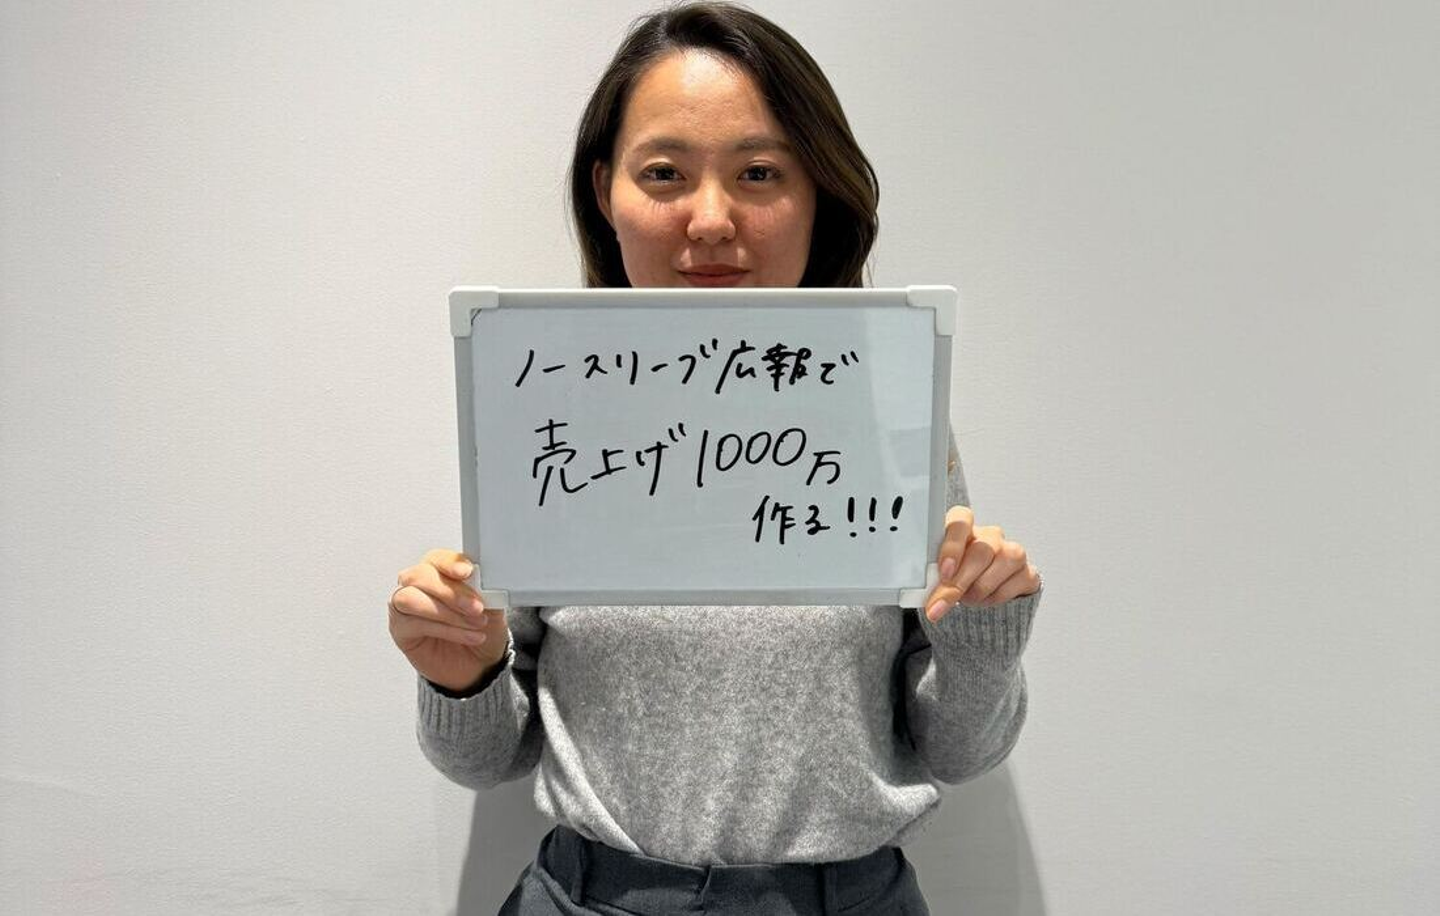 ノースリーブ広報で
売上げ1000万
作る!!!